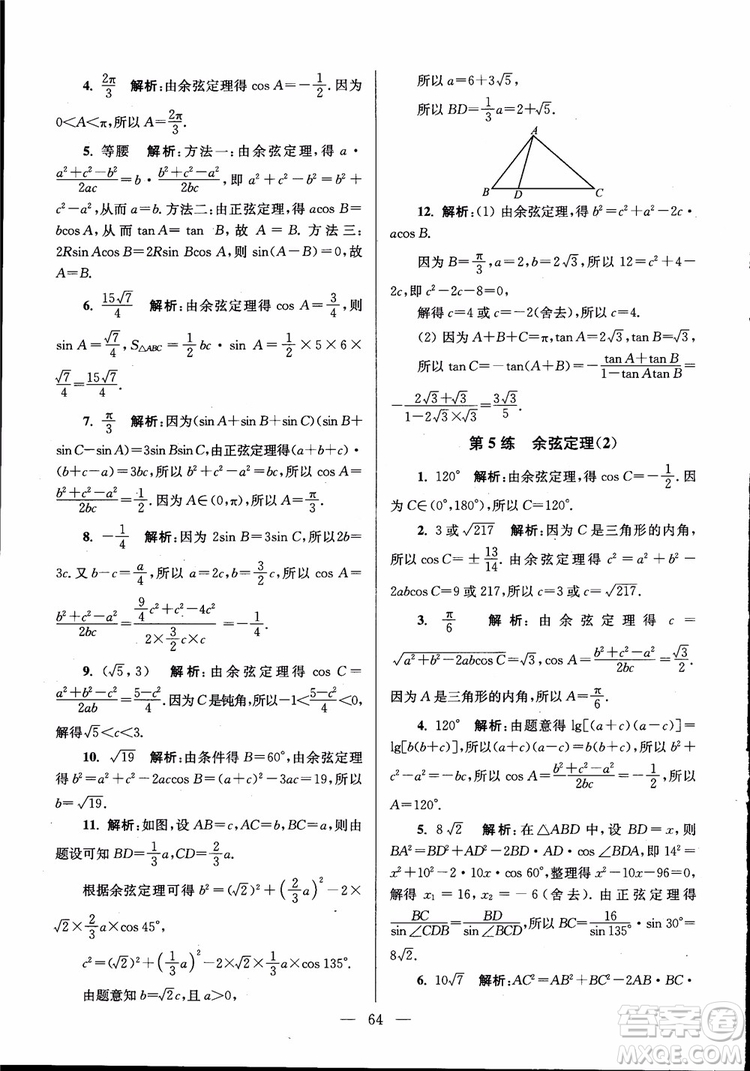 4. 2π/3 解析:由余弦定理得 cos A=-1/2. 因为
0<A<π,所以 A=2π/3.
5. 等腰 解析:方法一:由余弦定理,得 a·
(a²+c²-b²)/2ac=b·(b²+c²-a²)/2bc,即 a²+c²-b²=b²+
c²-a²,从而 a=b. 方法二:由正弦定理,得 acos B=
bcos A,从而 tan A=tan B,故 A=B. 方法三:
2Rsin Acos B=2Rsin Bcos A,所以 sin(A-B)=0,故
A=B.
6. 15√7/4 解析:由余弦定理得 cos A=3/4,则
sin A=√7/4,S△ABC=1/2 bc·sin A=1/2×5×6×
√7/4=15√7/4.
7. π/3 解析:因为(sin A+sin B+sin C)(sin B+
sin C-sin A)=3sin Bsin C,由正弦定理得(a+b+c)
·(b+c-a)=3bc,所以 b²+c²-a²=bc,所以 cos A=
(b²+c²-a²)/2bc=1/2. 因为 A∈(0,π),所以 A=π/3.
8. -1/4 解析:因为 2sin B=3sin C,所以2b=
3c. 又 b-c=a/4,所以 a=2c,b=3/2c,所以 cos A=
(b²+c²-a²)/2bc=(9/4c²+c²-4c²)/(2×3/2c×c)=-1/4.
9. (√5,3) 解析:由余弦定理得 cos C=
(a²+b²-c²)/2ab=(5-c²)/4. 因为 C 是钝角,所以-1<(5-c²)/4<0,
解得√5<c<3.
10. √19 解析:由条件得 B=60°,由余弦定理
得 b²=a²+c²-2accos B=(a+c)²-3ac=19,所以
b=√19.
11. 解析:如图,设 AB=c,AC=b,BC=a,则由
题设可知 BD=1/3a,CD=2/3a.
根据余弦定理可得 b²=(√2)²+(2/3a)²-2×
√2×2/3a×cos 45°,
c²=(√2)²+(1/3a)²-2×√2×1/3a×cos 135°.
由题意知 b=√2c,且 a>0,
所以 a=6+3√5,
所以 BD=1/3a=2+√5.
A
B D C
12. 解析:(1) 由余弦定理,得 b²=c²+a²-2c·
acos B.
因为 B=π/3,a=2,b=2√3,所以 12=c²+4-
2c,即 c²-2c-8=0,
解得 c=4 或 c=-2(舍去),所以 c=4.
(2) 因为 A+B+C=π,tan A=2√3,
tan B=√3,所以 tan C=-tan(A+B)=-(tan A+tan B)/(1-tan Atan B)=
-(2√3+√3)/(1-2√3×√3)=3√3/5.
第 5 练 余弦定理(2)
1. 120° 解析:由余弦定理,得 cos C=-1/2. 因
为 C∈(0°,180°),所以 C=120°.
2. 3 或√217 解析:因为 C 是三角形的内角,
所以 cos C=±13/14. 由余弦定理得 c²=a²+b²-
2abcos C=9 或 217,所以 c=3 或 c=√217.
3. π/6 解析:由余弦定理得 c=
√(a²+b²-2abcos C)=√3,所以 cos A=(b²+c²-a²)/2bc=√3/2.
因为 A 是三角形的内角,所以 A=π/6.
4. 120° 解析:由题意得 lg[(a+c)(a-c)]=
lg[b(b+c)],所以(a+c)(a-c)=b(b+c),所以 b²+
c²-a²=-bc,所以 cos A=(b²+c²-a²)/2bc=-1/2,所以
A=120°.
5. 8√2 解析:在△ABD 中,设 BD=x,则
BA²=BD²+AD²-2BD·AD·cos∠BDA,即14²=
x²+10²-2·10x·cos 60°,整理得 x²-10x-96=0,
解得 x₁=16,x₂=-6(舍去). 由正弦定理得
BC/sin∠CDB=BD/sin∠BCD,所以 BC=16/sin 135°·sin 30°=
8√2.
6. 10√7 解析:AC²=AB²+BC²-2AB·BC·
— 64 —
答案圈